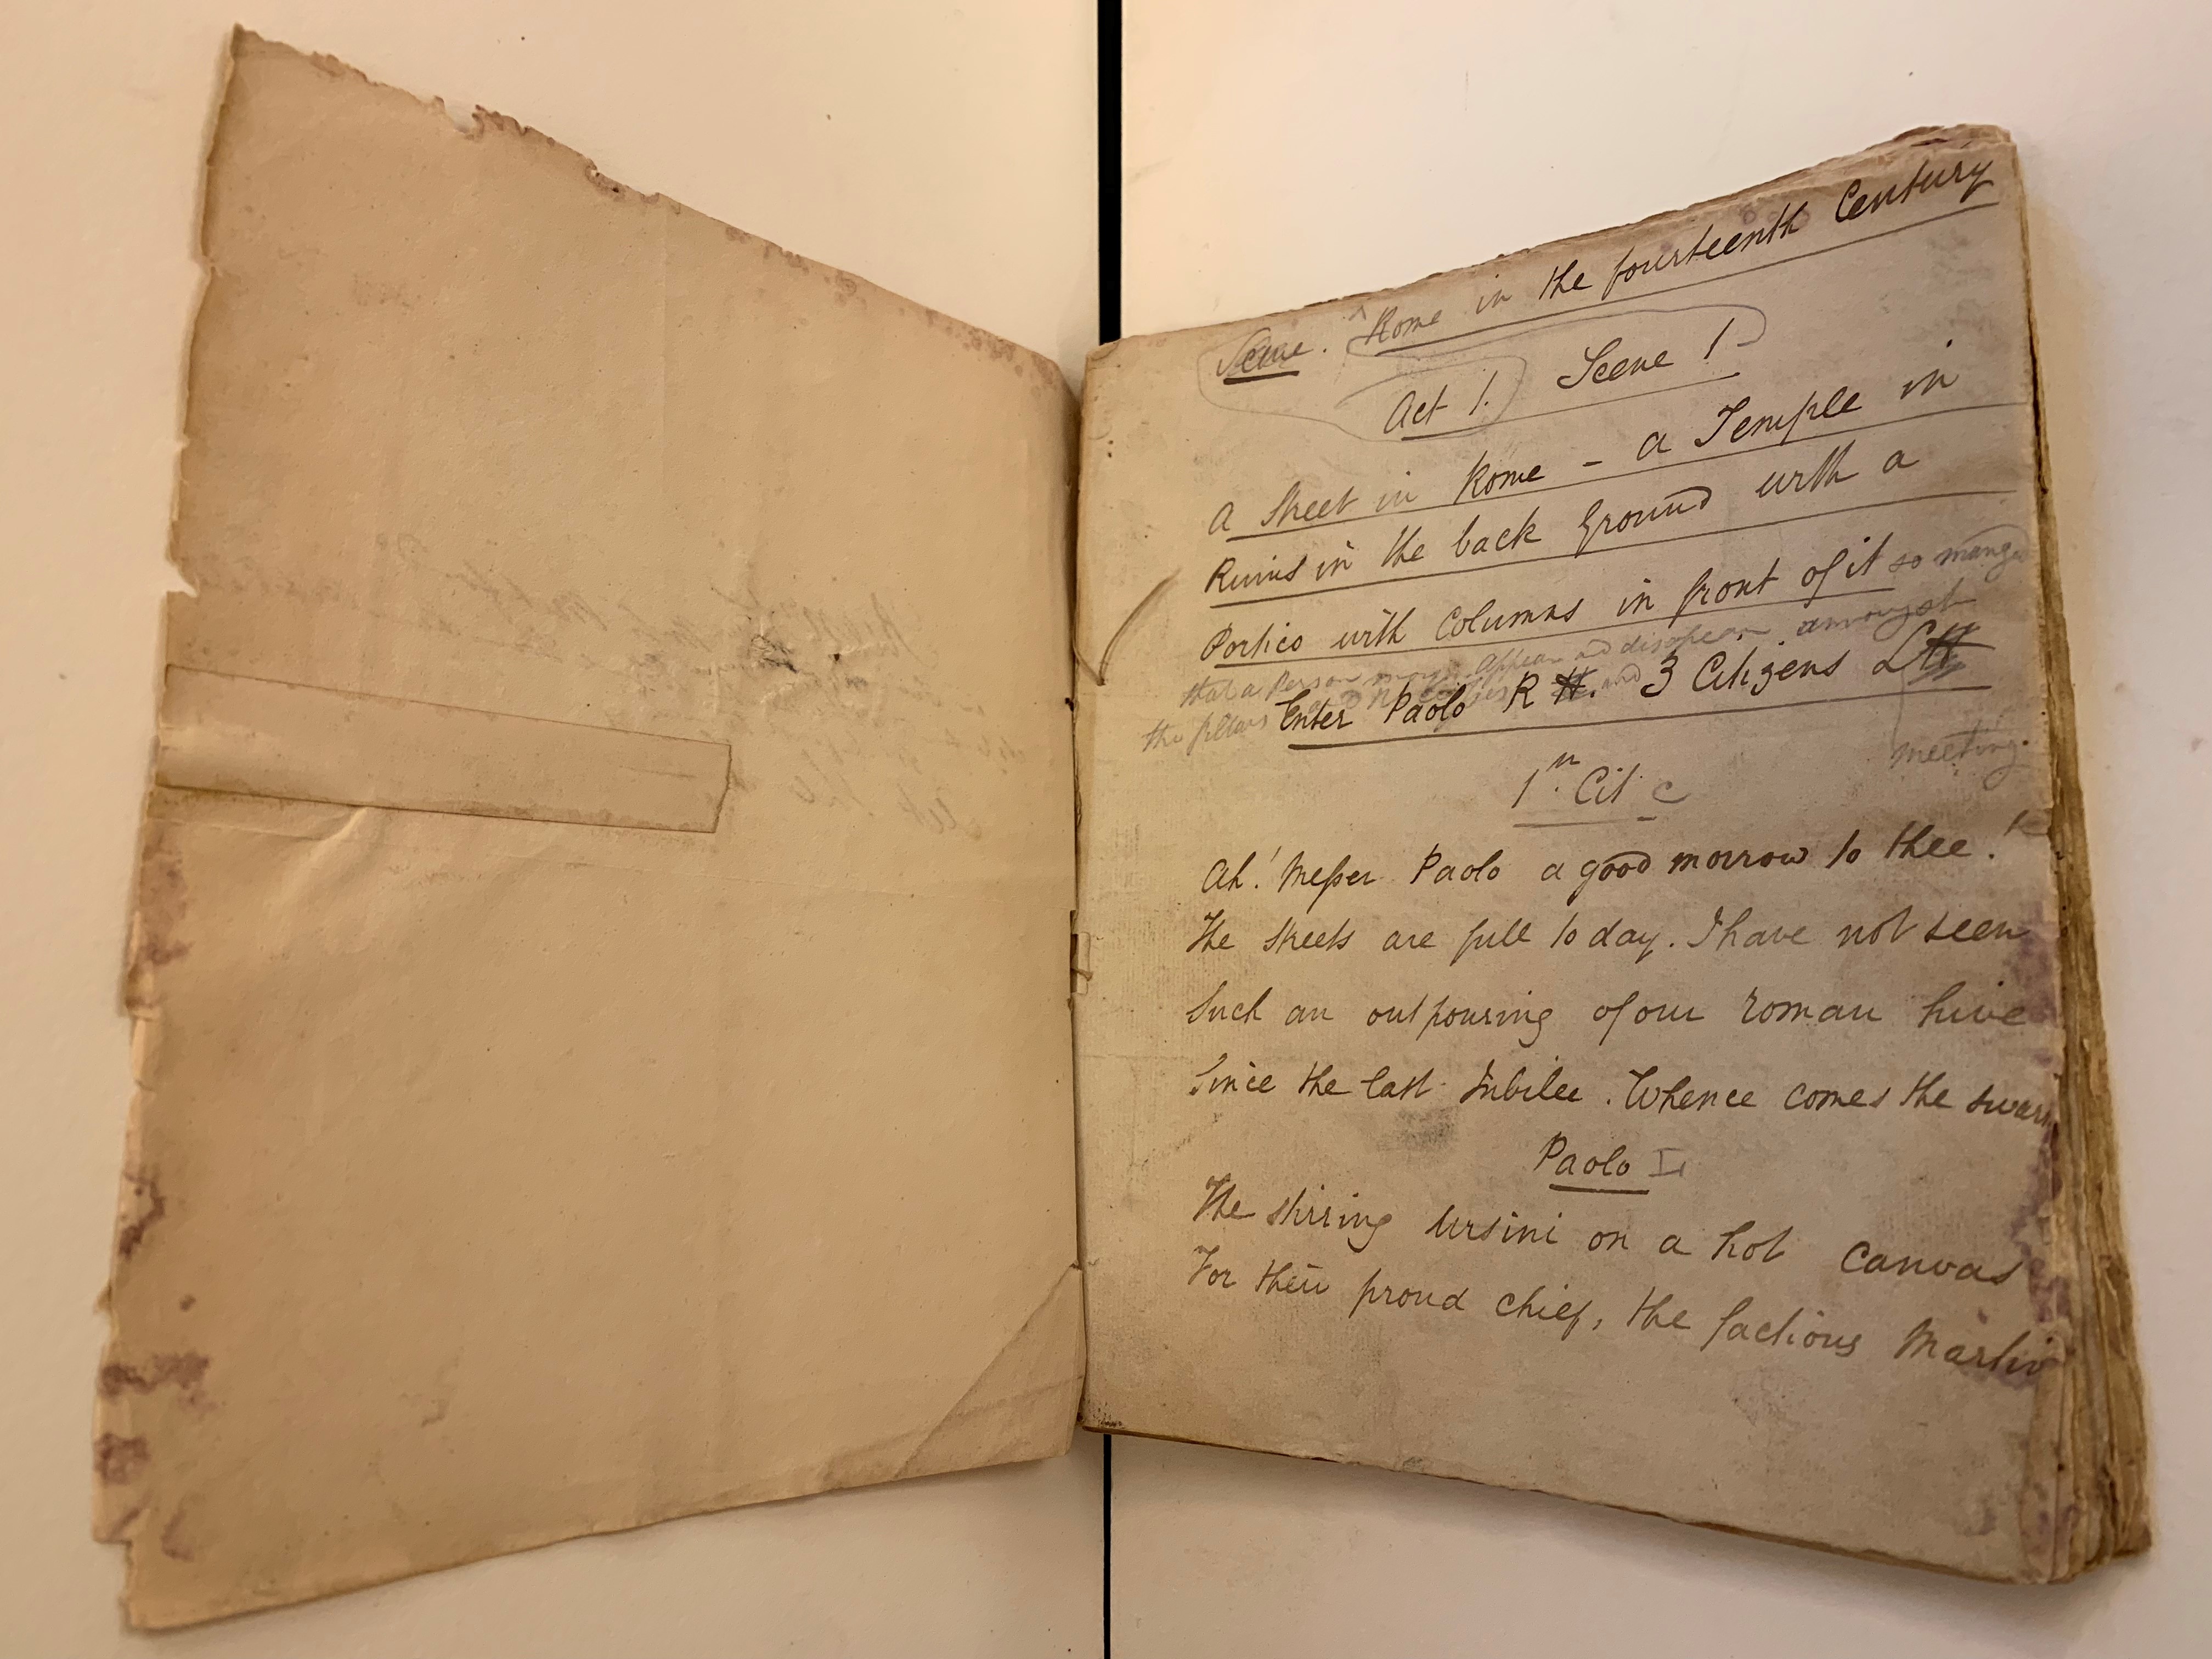 Scene. Rome in the fourteenth Century
Act 1. Scene 1
A Street in Rome – a Temple in
Ruins in the back Ground with a
Portico with Columns in front of it so mang
that a Person may appear and disappear amongst
the pillars Enter Paolo R H. and 3 Citizens L H
meeting.
1st. Cit C
Ah! Messer Paolo a good morrow to thee!
The streets are full to day. I have not seen
Such an outpouring of our roman hive
Since the last Jubilee. Whence comes the swarm
Paolo L
The stirring Ursini on a hot canvas
For their proud chief, the factious Martin